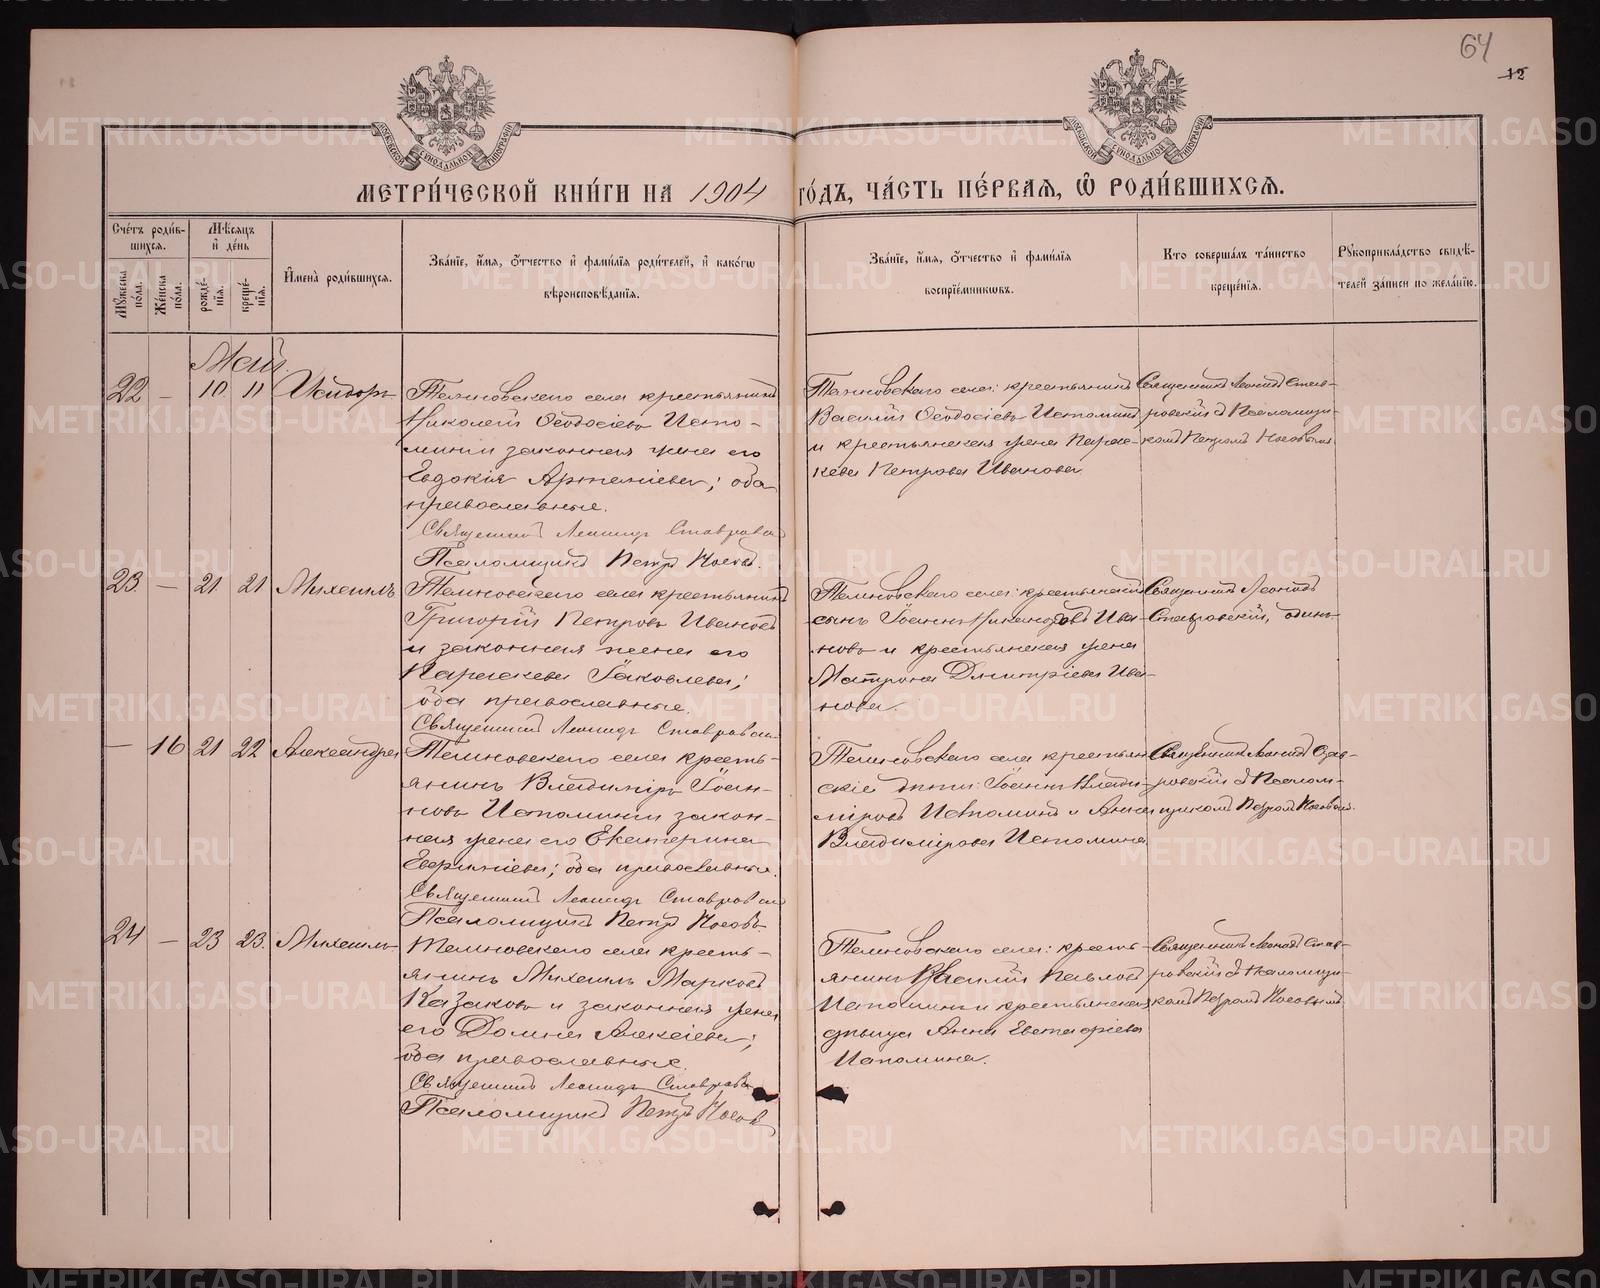 64
12
МЕТРИ́ЧЕСКОЙ КНИ́ГИ НА 1904 ГО́ДЪ, ЧА́СТЬ ПЕ́РВАЯ, Ѡ҆ РОДИ́ВШИХСЯ.
Сче́тъ роди́в-
шихся.
Мѣ́сяцъ
и҆ де́нь
Мꙋ́жеска по́ла.
Же́нска по́ла.
рожде́-
нїя.
креще́-
нїя.
И҆мена̀ роди́вшихся.
Зва́нїе, и҆́мя, ѻ҆́тчество и҆ фами́лїя роди́телей, и҆ како́гѡ
вѣроисповѣ́данїя.
Зва́нїе, и҆́мя, ѻ҆́тчество и҆ фами́лїя
воспрїе́мникѡвъ.
Кто̀ соверша́лъ та́инство
креще́нїя.
Рꙋкоприкла́дство свидѣ́-
телей за́писи по жела́нїю.
Май.
22 — 10 11 Исидоръ
Темновскаго села крестьянинъ
Николай Ѳеодосіевъ Исто-
минъ и законная жена его
Евдокія Артеміева; оба
православные.
Священникъ Леонидъ Ставровскій
Псаломщикъ Петръ Носовъ.
Темновскаго села: крестьянинъ
Василій Ѳеодосіевъ Истоминъ
и крестьянская жена Параске-
кева Петрова Иванова
Священникъ Леонидъ Став-
ровскій съ Псаломщи-
комъ Петромъ Носовымъ
23. — 21 21 Михаилъ
Темновскаго села крестьянинъ
Григорій Петровъ Ивановъ
и законная жена его
Параскева Іаковлева;
оба православные.
Священникъ Леонидъ Ставровскій
Темновскаго села: крестьянскій
сынъ Іоаннъ Никаноровъ Ива-
новъ и крестьянская жена
Матрона Димитріева Ива-
нова.
Священникъ Леонидъ
Ставровскій, одинъ
— 16 21 22 Александра
Темновскаго села кресть-
янинъ Владиміръ Іоан-
новъ Истоминъ и закон-
ная жена его Екатерина
оба православные.
Священникъ Леонидъ Ставровскій
Псаломщикъ Петръ Носовъ.
Темновскаго села крестьян-
скіе дѣти: Іоаннъ Влади-
міровъ Истоминъ и Анна
Владимірова Истомина
Священникъ Леонидъ Став-
ровскій съ Псалом-
щикомъ Петромъ Носовымъ.
24 — 23 23. Михаилъ
Темновскаго села кресть-
янинъ Михаилъ Марковъ
Казаковъ и законная жена
его Домна Алексіева;
оба православные.
Священникъ Леонидъ Ставровскій
Псаломщикъ Петръ Носовъ
Темновскаго села: кресть-
янинъ Василій Павловъ
Истоминъ и крестьянская
дѣвица Анна Евстафіева
Истомина.
Священникъ Леонидъ Став-
ровскій съ Псаломщи-
комъ Петромъ Носовымъ.
METRIKI.GASO-URAL.RU